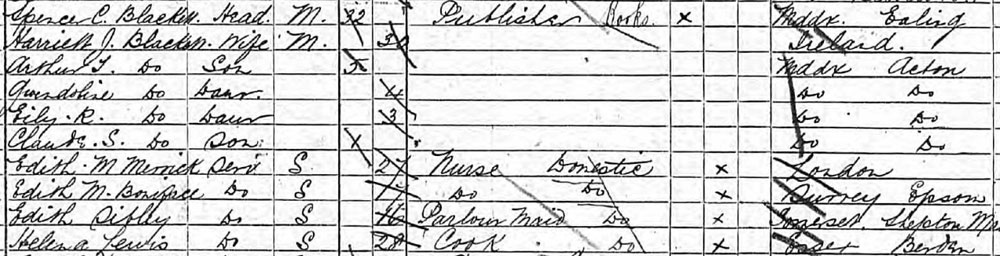 Spencer C. Blackett. Head. M. 32 Publisher Books × Middx. Ealing
Harriett J. Blackett. Wife M. Ireland.
Arthur T. Do Son 5 Middx Acton
Gwendoline Do Daur. 4 Do Do
Eily. R. Do Daur 3 Do Do
Claude. S. Do Son. Do Do
Edith. M Merrick Serv S. 27 Nurse Domestic × London
Edith M. Boniface Do S Do Do × Surrey Epsom
Edith Sibley Do S 16 Parlour Maid Do × Somerset Shepton
Helena Lewis Do S 28 Cook. Do × Essex Berden